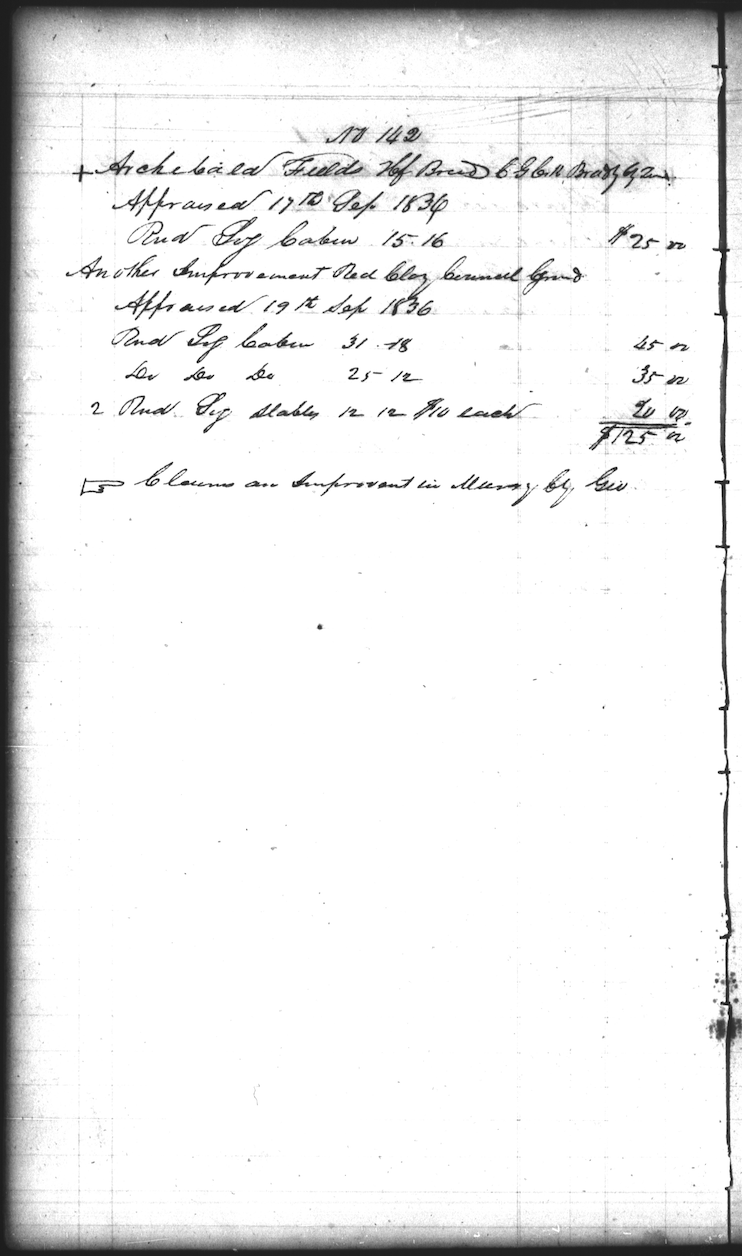 No 142
+ Archibald Fields Hf Breed C. H. Bradly Cy Ten.
Appraised 17th Sep 1836
Rnd Log Cabin 15-16 $25 00
Another Improvement Red Clay Council Grond
Appraised 19th Sep 1836
Rnd Log Cabin 31-18 45 00
Do Do Do 25-12 35 00
2 Rnd Log Stables 12 12 $10 each 20 00
$125 00
☞ Claims an Improvent in Murry Cty Geo